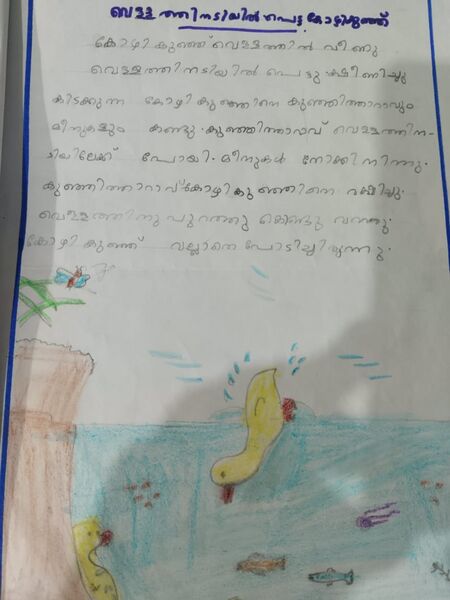 വെള്ളത്തിനടിയിൽ പെട്ട കോഴികുഞ്ഞ്
കോഴി കുഞ്ഞ് വെള്ളത്തിൽ വീണു
വെള്ളത്തിനടിയിൽ പെട്ടു. ക്ഷീണിച്ചു
കിടക്കുന്ന കോഴി കുഞ്ഞിനെ കുഞ്ഞിത്താറാവും
മീനുകളും കണ്ടു. കുഞ്ഞിത്താറാവ് വെള്ളത്തിന-
ടിയിലേക്ക് പോയി. മീനുകൾ നോക്കി നിന്നു.
കുഞ്ഞിത്താറാവ് കോഴി കുഞ്ഞിനെ രക്ഷിച്ചു.
വെള്ളത്തിനു പുറത്തു കൊണ്ടു വന്നു.
കോഴി കുഞ്ഞ് വല്ലാതെ പേടിച്ചിരുന്നു.